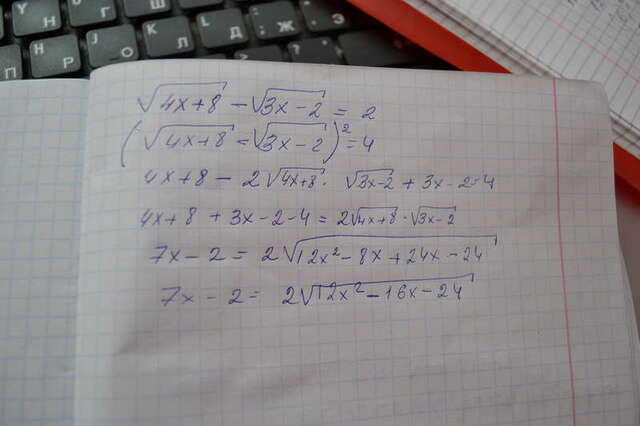 Y Н
U Г
О
К Л
L Д
; Ж
Э
П
Р
√4x+8 − √3x−2 = 2
(√4x+8 − √3x−2)² = 4
4x+8 − 2√4x+8 · √3x−2 + 3x−2=4
4x+8 + 3x−2−4 = 2√4x+8 · √3x−2
7x−2 = 2√12x²−8x+24x−24
7x − 2 = 2√12x²−16x−24